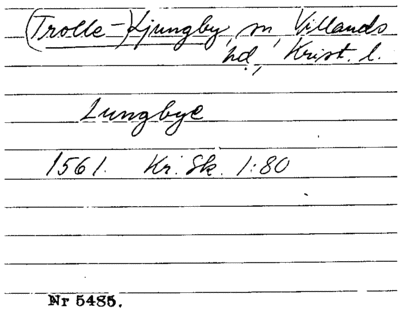 (Trolle-)Ljungby, sn, Villands
hd, Krist. l.
Lungbye
1561. Kr. Sk. 1:80
Nr 5485.